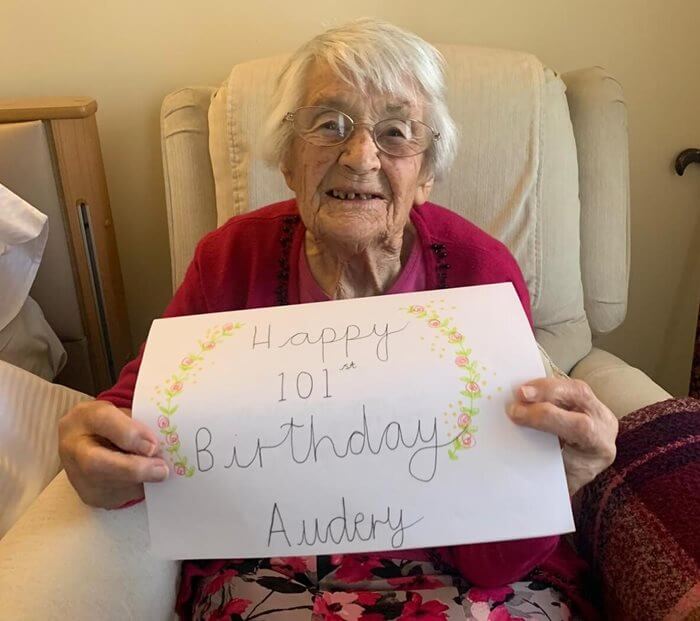 Happy
101st
Birthday
Audery